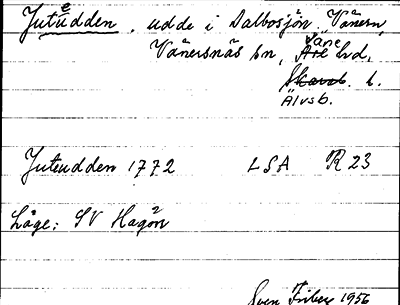 Juteudden, udde i Dalbosjön, Vänern,
Vänersnäs sn, Åse Väne hd,
Skarab. l.
Älvsb.
Juteudden 1772 LSA R 23
Läge: SV Hagön
Sven Friberg 1956